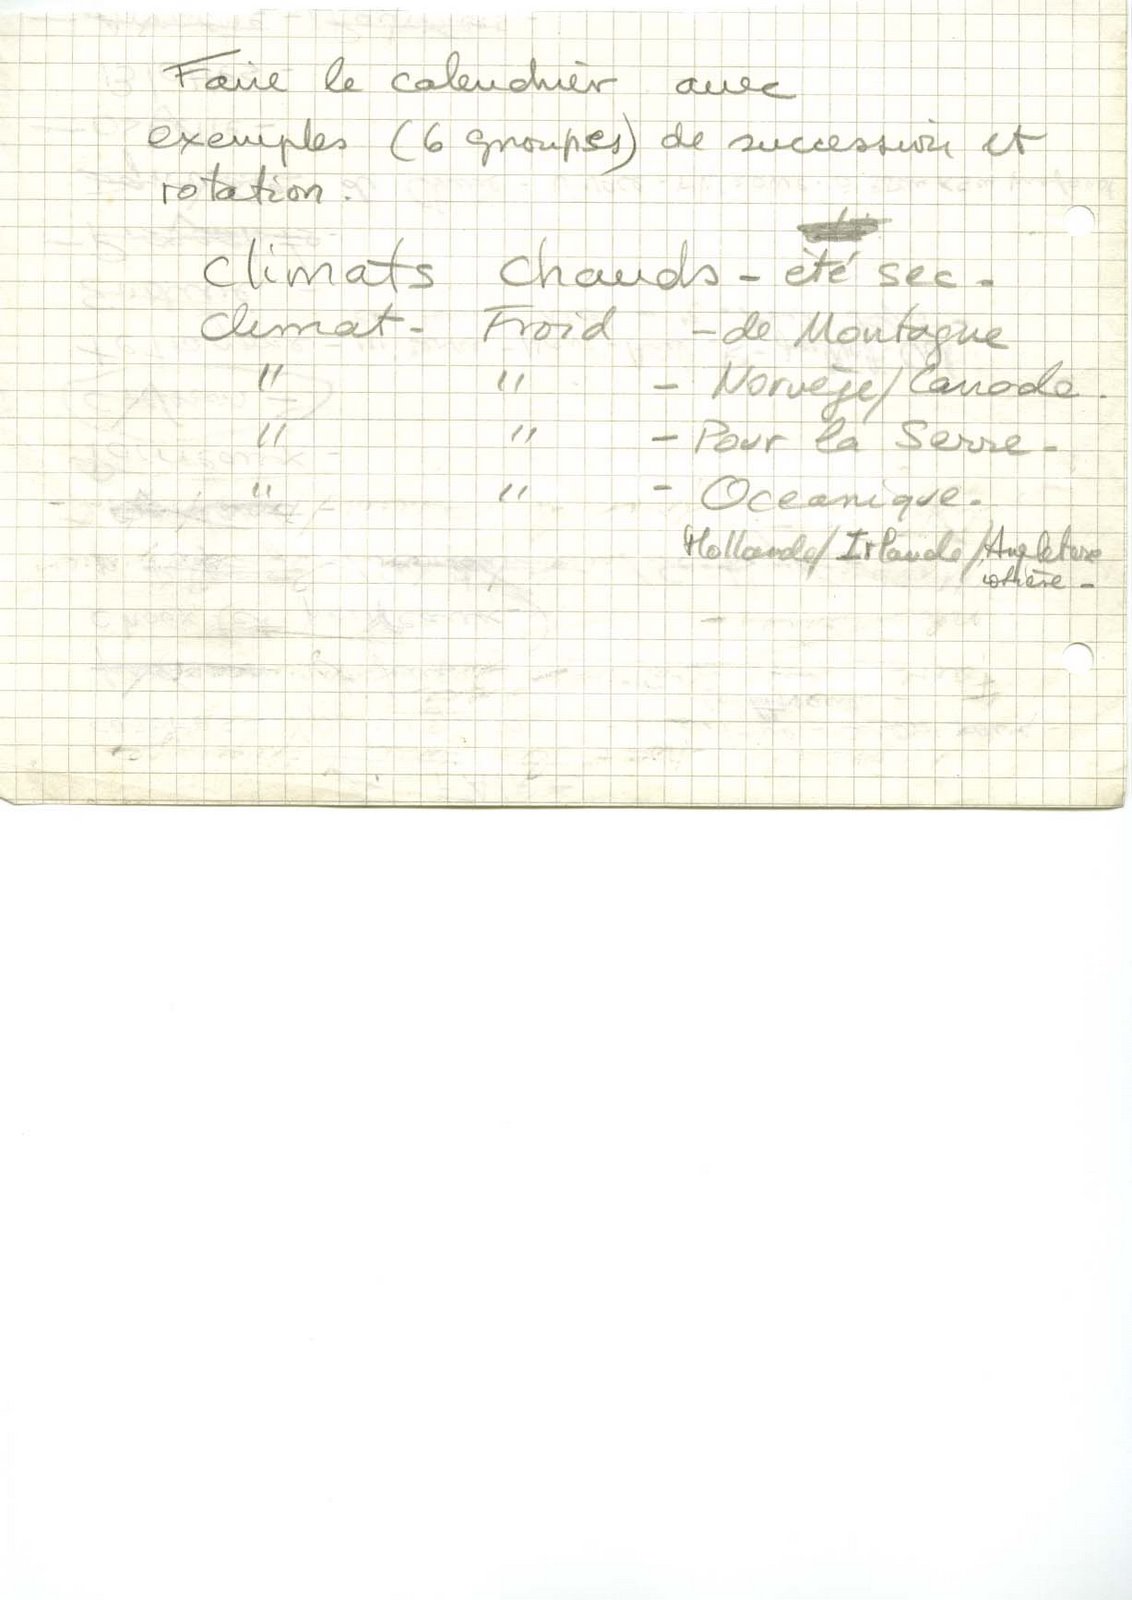 Faire le calendrier avec
exemples (6 groupes) de succession et
rotation.
climats chauds - été sec -
climat - Froid - de Montagne
" " - Norvège/Canada.
" " - Pour la Serre -
" " - Oceanique.
Hollande/Irlande/Angleterre
côtière -